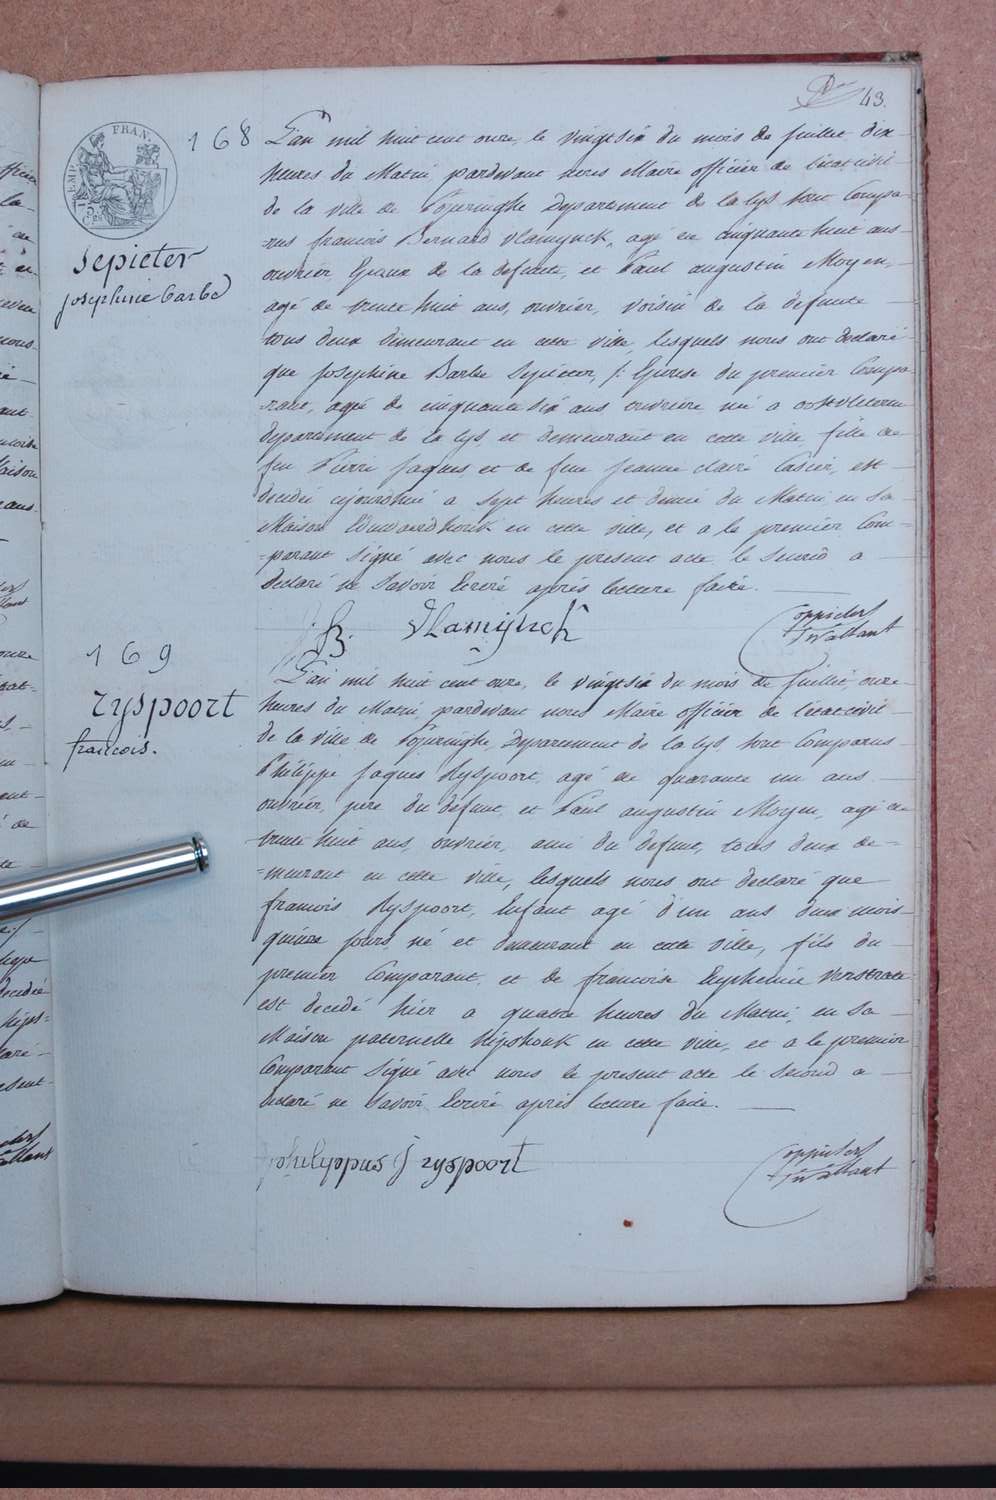 43.
EMP. FRAN.
168
Sepieter
josephine barbe
L'an mil huit cent onze, le vingtsix du mois de juillet dix
heures du Matin pardevant nous Maire officier de l'état civil
de la ville de Poperinghe Departement de la lys sont Compa-
-rus francois Bernard Vlamynck, agé de cinquante huit ans
ouvrier Epoux de la defunte, et Paul augustin Moyen,
agé de trente huit ans, ouvrier, voisin de la defunte
tous deux demeurant en cette ville, lesquels nous ont declaré
que Josephine Barbe Sepieter, /: Epouse du premier Compa-
-rant, agée de cinquante six ans ouvriere né a oostvleteren
departement de la lys, et demeurant en cette ville, fille de
feu Pierre jaques, et de feue jeanne claire Casier, est
decedée cejourdhui a sept heures et demie du Matin en sa
Maison in cette ville, et a le premier Com-
-parant signé avec nous le present acte le second a
declaré ne savoir Ecrire après lecture faite.
f B. Vlamijnck
169
ryspoort
francois.
L'an mil huit cent onze, le vingtsix du mois de juillet, onze
heures du Matin, pardevant nous Maire officier de l'état civil
de la ville de Poperinghe, Departement de la lys, sont Comparus
Philippe jaques Ryspoort, agé de quarante un ans
ouvrier, pere du defunt, et Paul augustin Moyen, agé de
trente huit ans, ouvrier, ami du defunt, tous deux de-
-meurant en cette ville, lesquels nous ont declaré que
francois Ryspoort, Enfant agé d'un ans deux mois
quinze jours, né et demeurant en cette ville, fils du
premier Comparant, et de francoise Euphenie Verstraete
est decedé hier a quatre heures du Matin, en sa
Maison paternelle hipshouk en cette ville, et a le premier
Comparant signé avec nous le present acte le second a
declaré ne savoir Ecrire après lecture faite.
philyppus J ryspoort